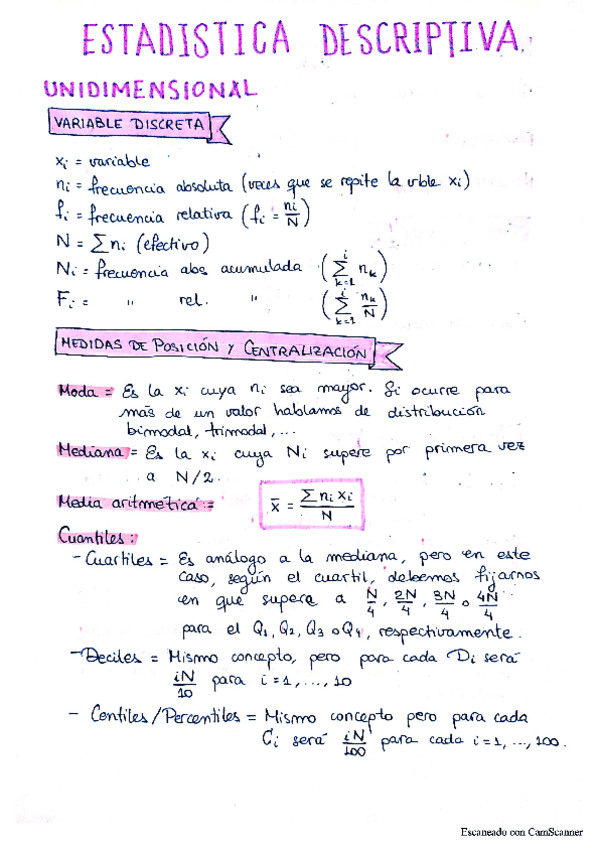 ESTADISTICA DESCRIPTIVA.
UNIDIMENSIONAL
VARIABLE DISCRETA
xi = variable
ni = frecuencia absoluta (veces que se repite la vble xi)
fi = frecuencia relativa (fi = ni/N)
N = Σ ni (efectivo)
Ni = frecuencia abs acumulada (Σ_{k=1}^{i} nk)
Fi = " rel. " (Σ_{k=1}^{i} nk/N)
MEDIDAS DE POSICIÓN Y CENTRALIZACIÓN
Moda = Es la xi cuya ni sea mayor. Si ocurre para
más de un valor hablamos de distribución
bimodal, trimodal, ...
Mediana = Es la xi cuya Ni supere por primera vez
a N/2.
Media aritmética = x̄ = Σ ni xi / N
Cuantiles:
- Cuartiles = Es análogo a la mediana, pero en este
caso, según el cuartil, debemos fijarnos
en que supera a N/4, 2N/4, 3N/4 o 4N/4
para el Q1, Q2, Q3 o Q4, respectivamente.
- Deciles = Mismo concepto, pero para cada Di será
iN/10 para i = 1, ..., 10
- Centiles/Percentiles = Mismo concepto pero para cada
Ci será iN/100 para cada i = 1, ..., 100.
Escaneado con CamScanner